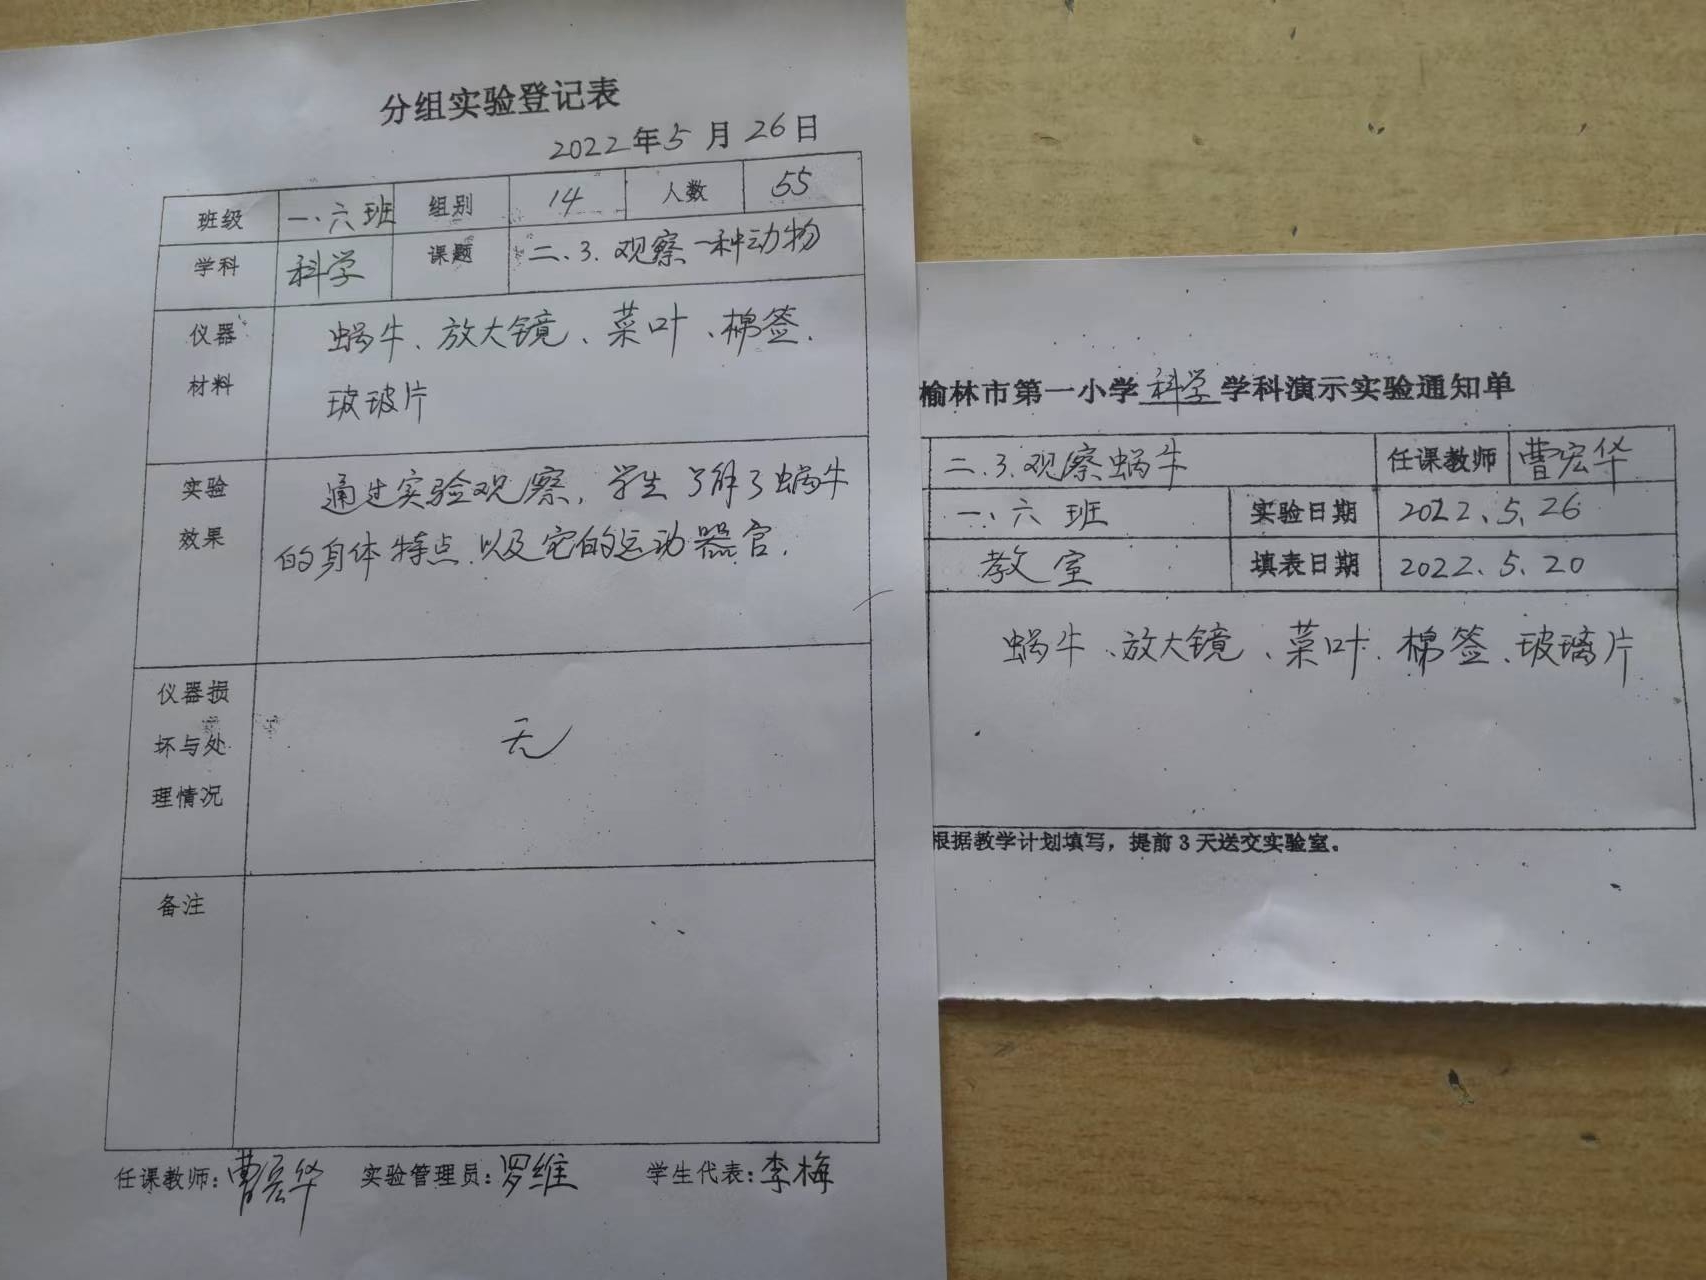 分组实验登记表
2022年5月26日
班级 一.六班 组别 14 人数 55
学科 科学 课题 二.3.观察一种动物
仪器材料 蜗牛、放大镜、菜叶、棉签.
玻玻片
实验效果 通过实验观察,学生了解了蜗牛
的身体特点以及它的运动器官.
仪器损坏与处理情况 无
备注
任课教师:曹宏华 实验管理员:罗维 学生代表:李梅
榆林市第一小学科学学科演示实验通知单
二.3.观察蜗牛 任课教师 曹宏华
一.六班 实验日期 2022.5.26
教室 填表日期 2022.5.20
蜗牛、放大镜、菜叶.棉签、玻璃片
根据教学计划填写，提前3天送交实验室。